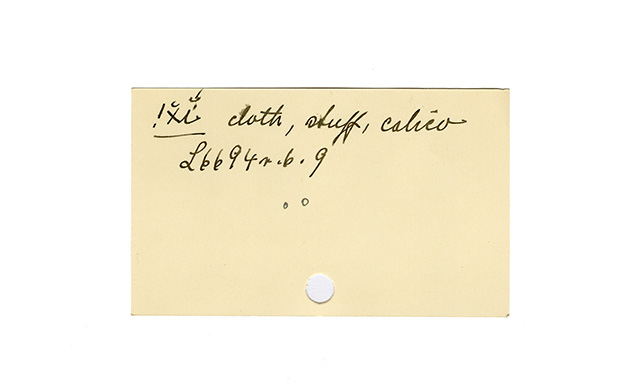 !x̆ĭ cloth, stuff, calico
L6694r.b.9